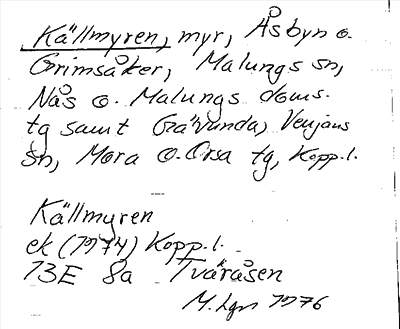 Källmyren, myr, Åsbyn o.
Grimsåker, Malungs sn,
Nås o. Malungs doms.
tg samt Gävunda, Venjans
sn, Mora o. Orsa tg, Kopp.l.
Källmyren
ek (1974) Kopp.l.
13E 8a Tväråsen
M. Lgn 1976